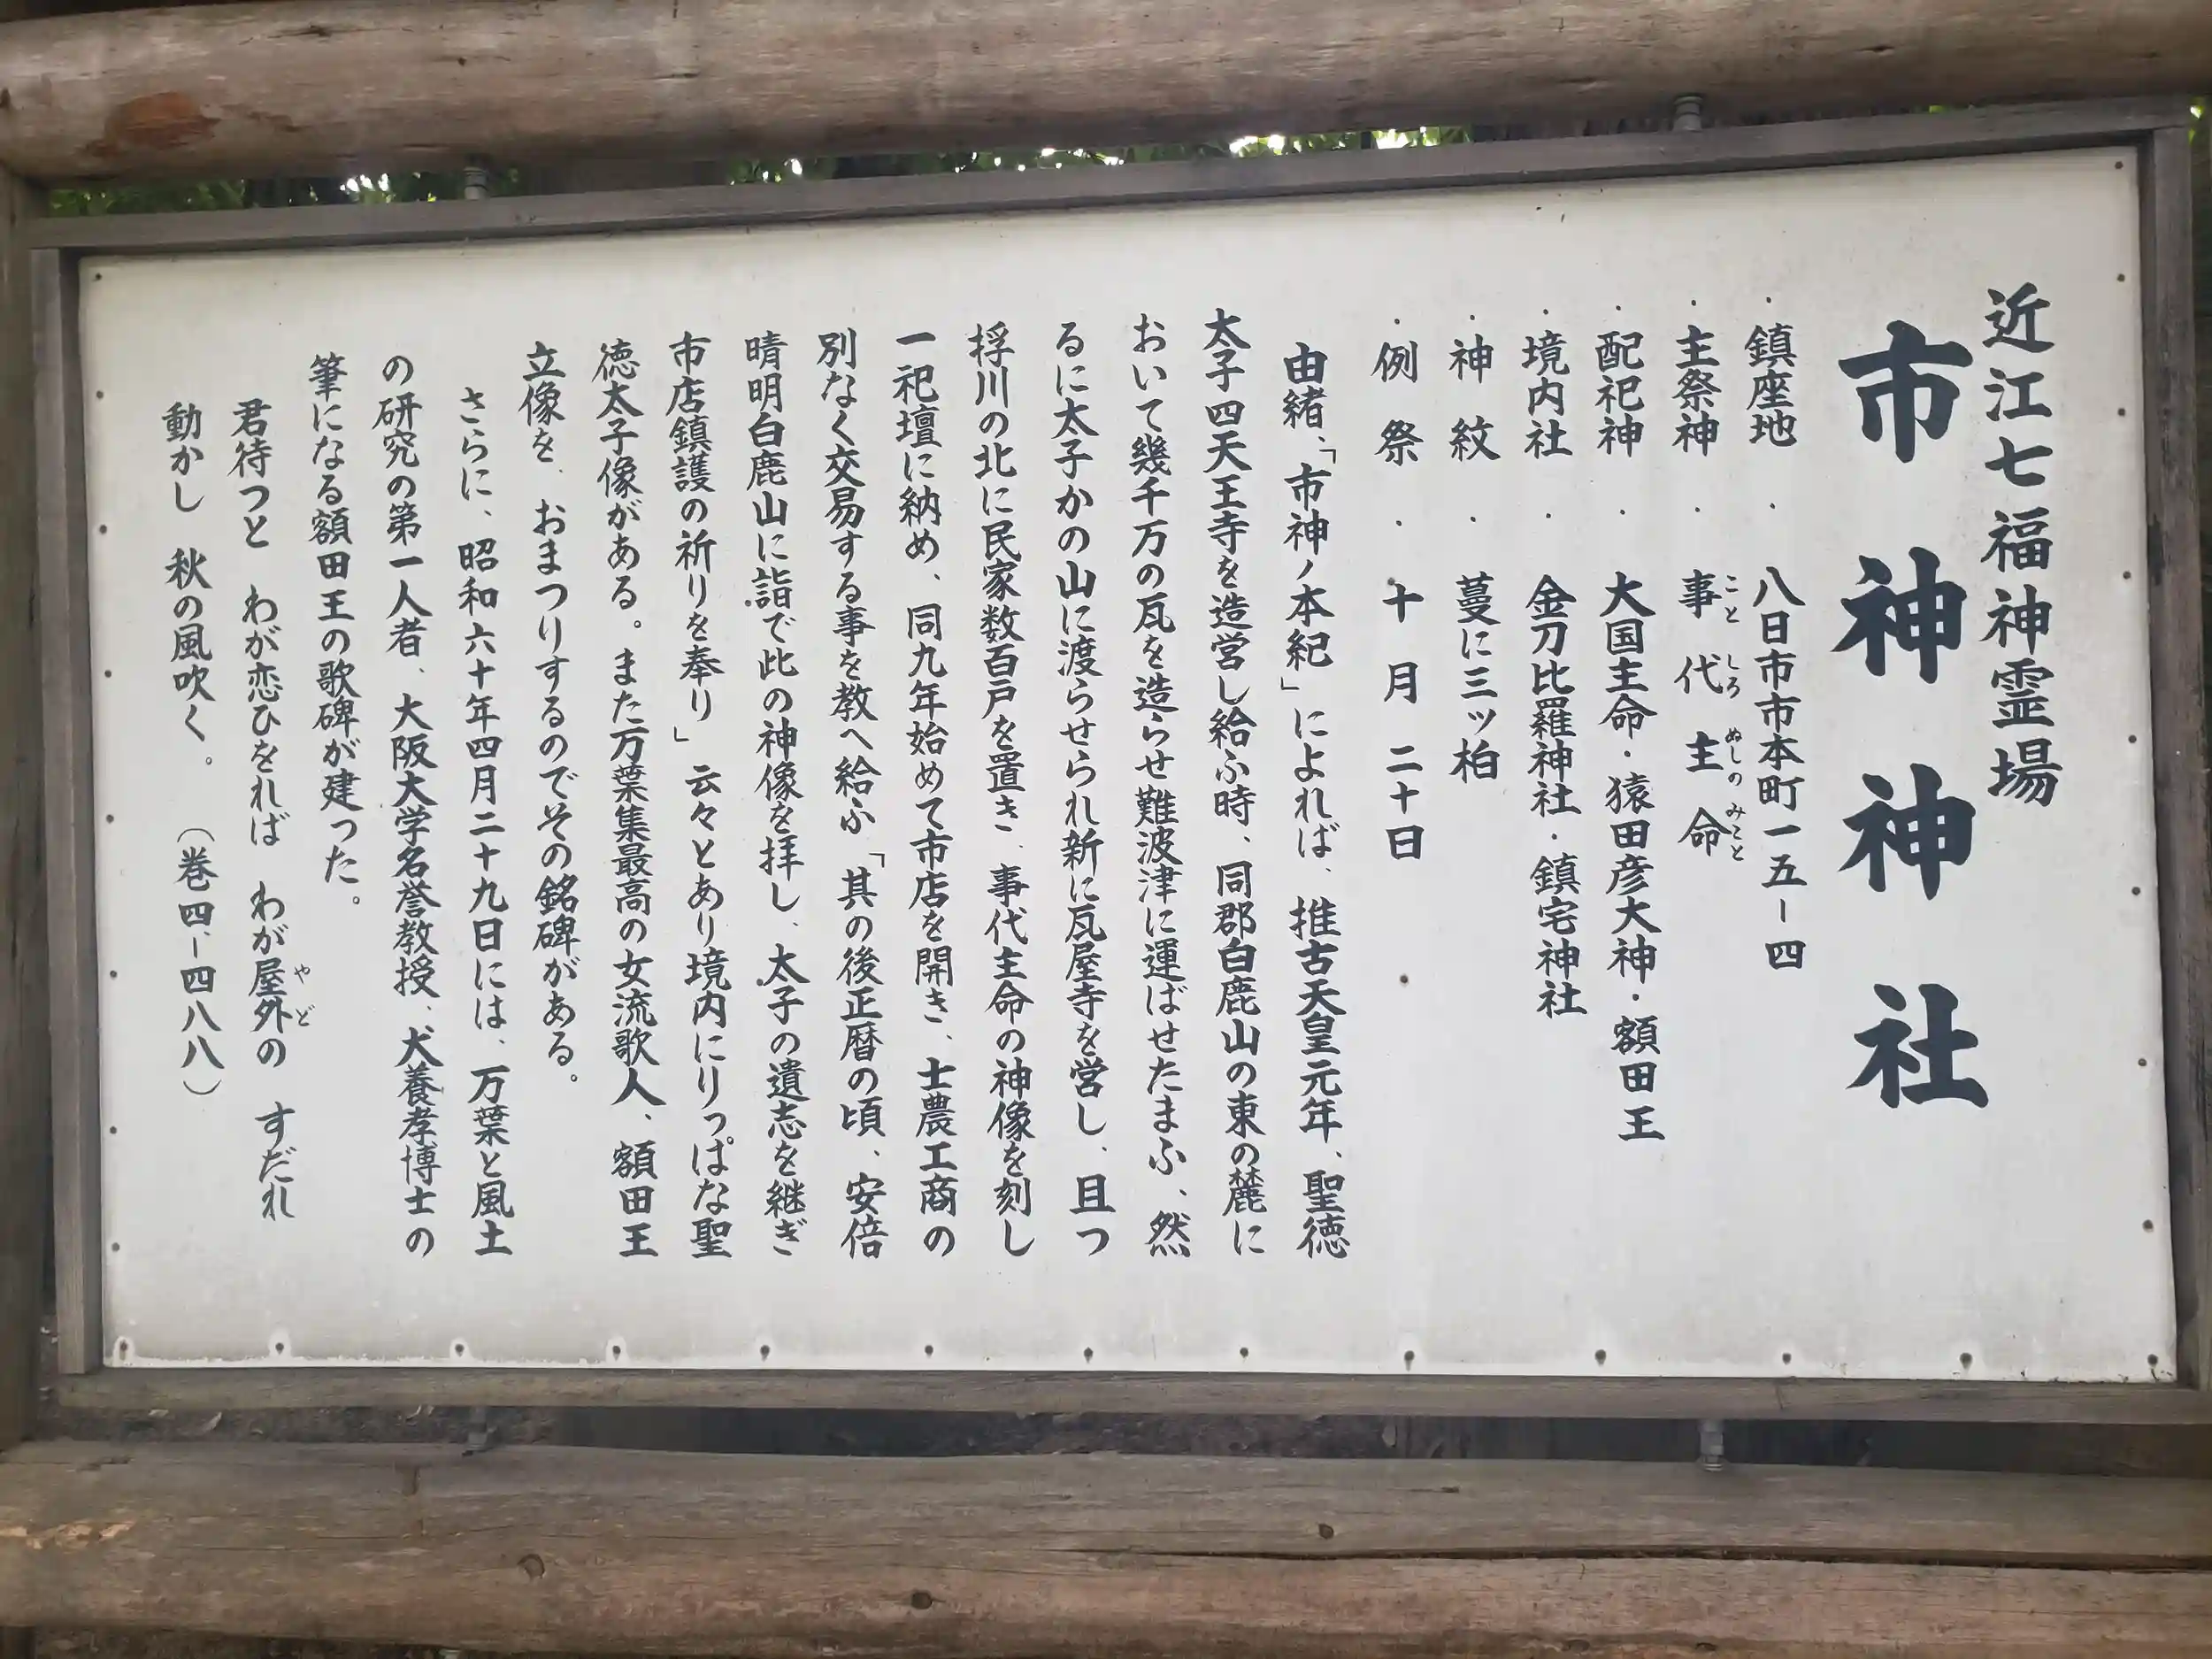 近江七福神霊場
市神神社
・鎮座地・八日市市本町一五ー四
・主祭神・事代主命
こと しろ ぬしの みこと
・配祀神・大国主命・猿田彦大神・額田王
・境内社・金刀比羅神社・鎮宅神社
・神紋・蔓に三ッ柏
・例祭・十月二十日
由緒、「市神ノ本紀」によれば、推古天皇元年、聖徳
太子四天王寺を造営し給ふ時、同郡白鹿山の東の麓に
おいて幾千万の瓦を造らせ難波津に運ばせたまふ、然
るに太子かの山に渡らせられ新に瓦屋寺を営し、且つ
捊川の北に民家数百戸を置き、事代主命の神像を刻し
一祀壇に納め、同九年始めて市店を開き、士農工商の
別なく交易する事を教へ給ふ「其の後正暦の頃、安倍
晴明白鹿山に詣で此の神像を拝し、太子の遺志を継ぎ
市店鎮護の祈りを奉り」云々とあり境内にりっぱな聖
徳太子像がある。また万葉集最高の女流歌人、額田王
立像を、おまつりするのでその銘碑がある。
さらに、昭和六十年四月二十九日には、万葉と風土
の研究の第一人者、大阪大学名誉教授、犬養孝博士の
筆になる額田王の歌碑が建った。
君待つと わが恋ひをれば わが屋外の すだれ
やど
動かし 秋の風吹く。 (巻四ー四八八)